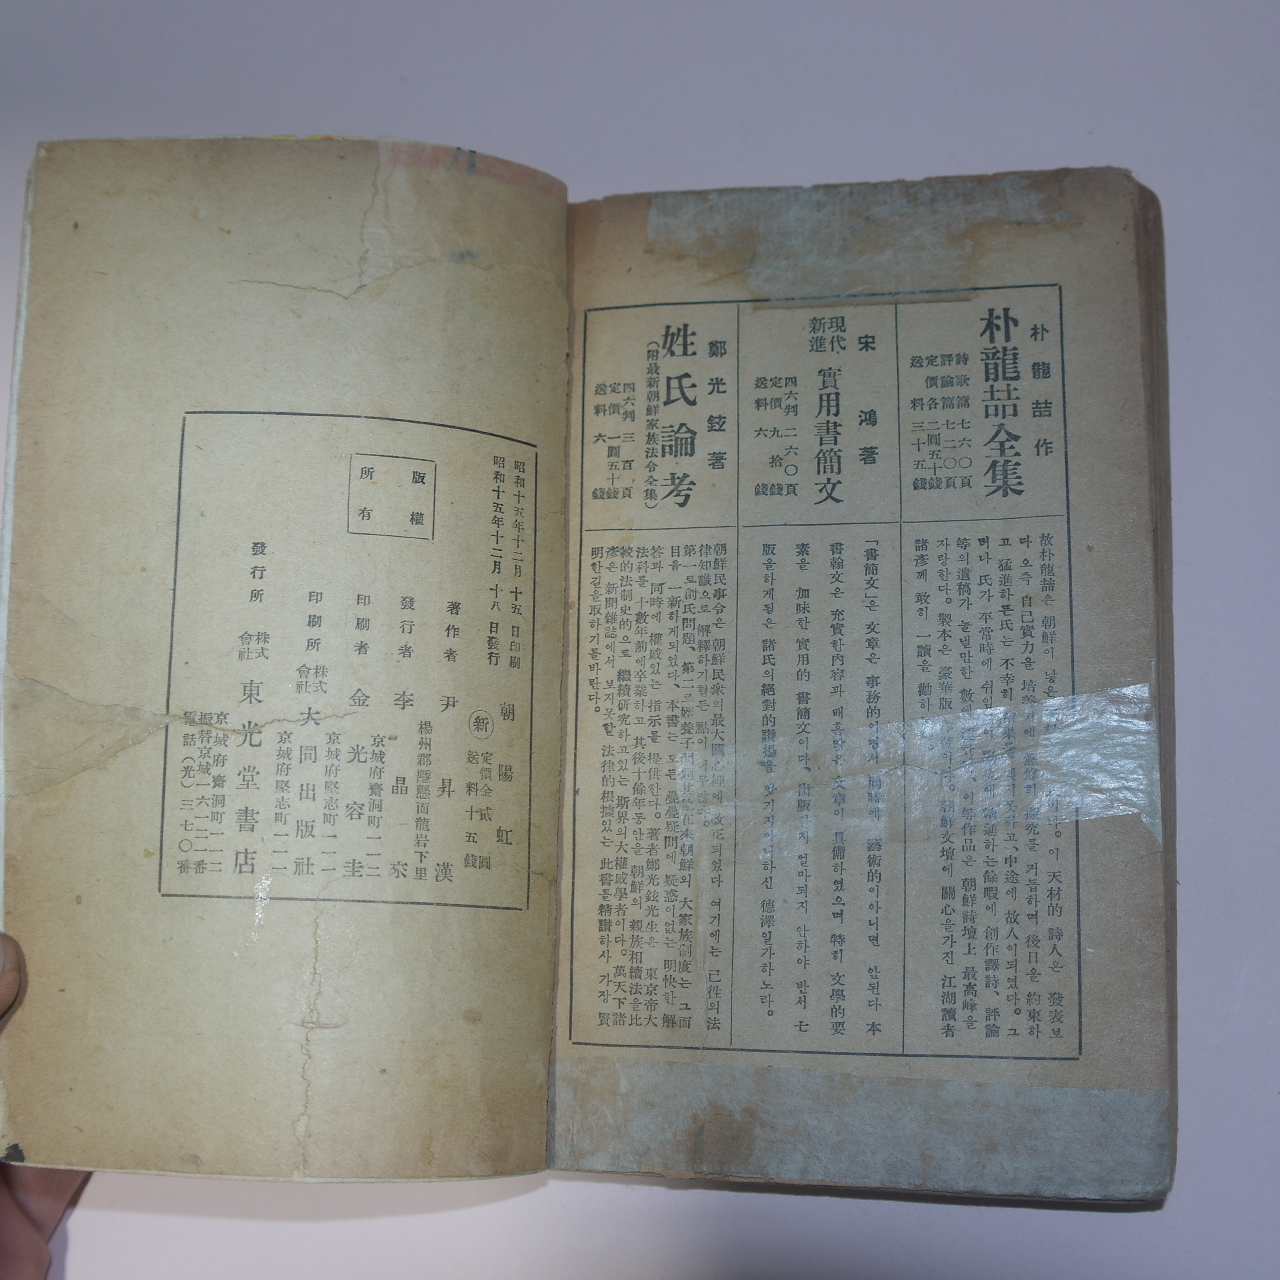 朴龍喆作
朴龍喆全集
詩歌篇 七六〇頁
評論篇 七二〇頁
定價各 二圓五十錢
送料 三十五錢
故朴龍喆은 朝鮮이 낳은
이 天材的 詩人은 發表보
다 오즉 自己實力을 培養
거듭하며 後日을 約束하
고 猛進하든氏는 不幸히
中途에 故人이되였다。 그
러나 氏가 平常時에
餘暇에 創作譯詩、評論
等의 遺稿가 놀낼만한 數에
이等作品은 朝鮮詩壇上 最高峰을
자랑한다。 製本은 豪華版
朝鮮文壇에 關心을가진 江湖讀者
諸彥께 敢히 一讀을 勸하
宋鴻著
現代
新進
實用書簡文
四六判 二六〇頁
定價 九拾錢
送料 六錢
「書簡文」은 文章은 事務的이면서 同時에 藝術的이아니면 안된다 本
書翰文은 充實한內容과 매흠많은 文章이 具備하였으며 特히 文學的要
素을 加味한 實用的 書簡文이다、出版한지 얼마되지 안하야 반서 七
版을하게될은 諸氏의絕對的讚揚을 앗기지아니하신 德澤일가하노라。
鄭光鉉著
姓氏論考
(附最新朝鮮家族法令全集)
四六判 三百頁
定價 一圓五十錢
送料 六錢
朝鮮民事令은 朝鮮民衆의最大關心裡에 改正되였다 여기에는 己往의法
律知識으로 解釋하기힘든 點이 너무많다。
第一로創氏問題、第二 異姓養子問題其他在來朝鮮의 大家族制度는 그面
目을 一新하게되었다、本書는 모든疊疊疑問에 疑惑이없는 明快한 解
答과 同時에 權威있는 指示를 提供한다。著者鄭光鉉先生은 東京帝大
法科를 十數年前에卒業하고 其後十餘年동안을 朝鮮의 親族相續法을比
較的法制史的으로 繼續硏究하고있는 斯界의大權威學者이다。萬天下諸
彥은 新聞雜誌에서 보지못할 法律的根據있는 此書를精讀하사 가장 賢
明한길을取하기를바란다。
昭和十五年十二月 十五 日印刷
昭和十五年十二月 十八 日發行
朝陽虹
新
定價金貳圓
送料十五錢
版權
所有
楊州郡 懸面龍岩下里
著作者 尹昇漢
發行者 李晶來
京城府齋洞町一一二
印刷者 金光容圭
京城府堅志町一一一
印刷所 株式會社 大同出版社
京城府堅志町一一一
發行所 株式會社 東光堂書店
京城府齋洞町一一二
振替京城一六一三二番
電話(光)三一七〇番